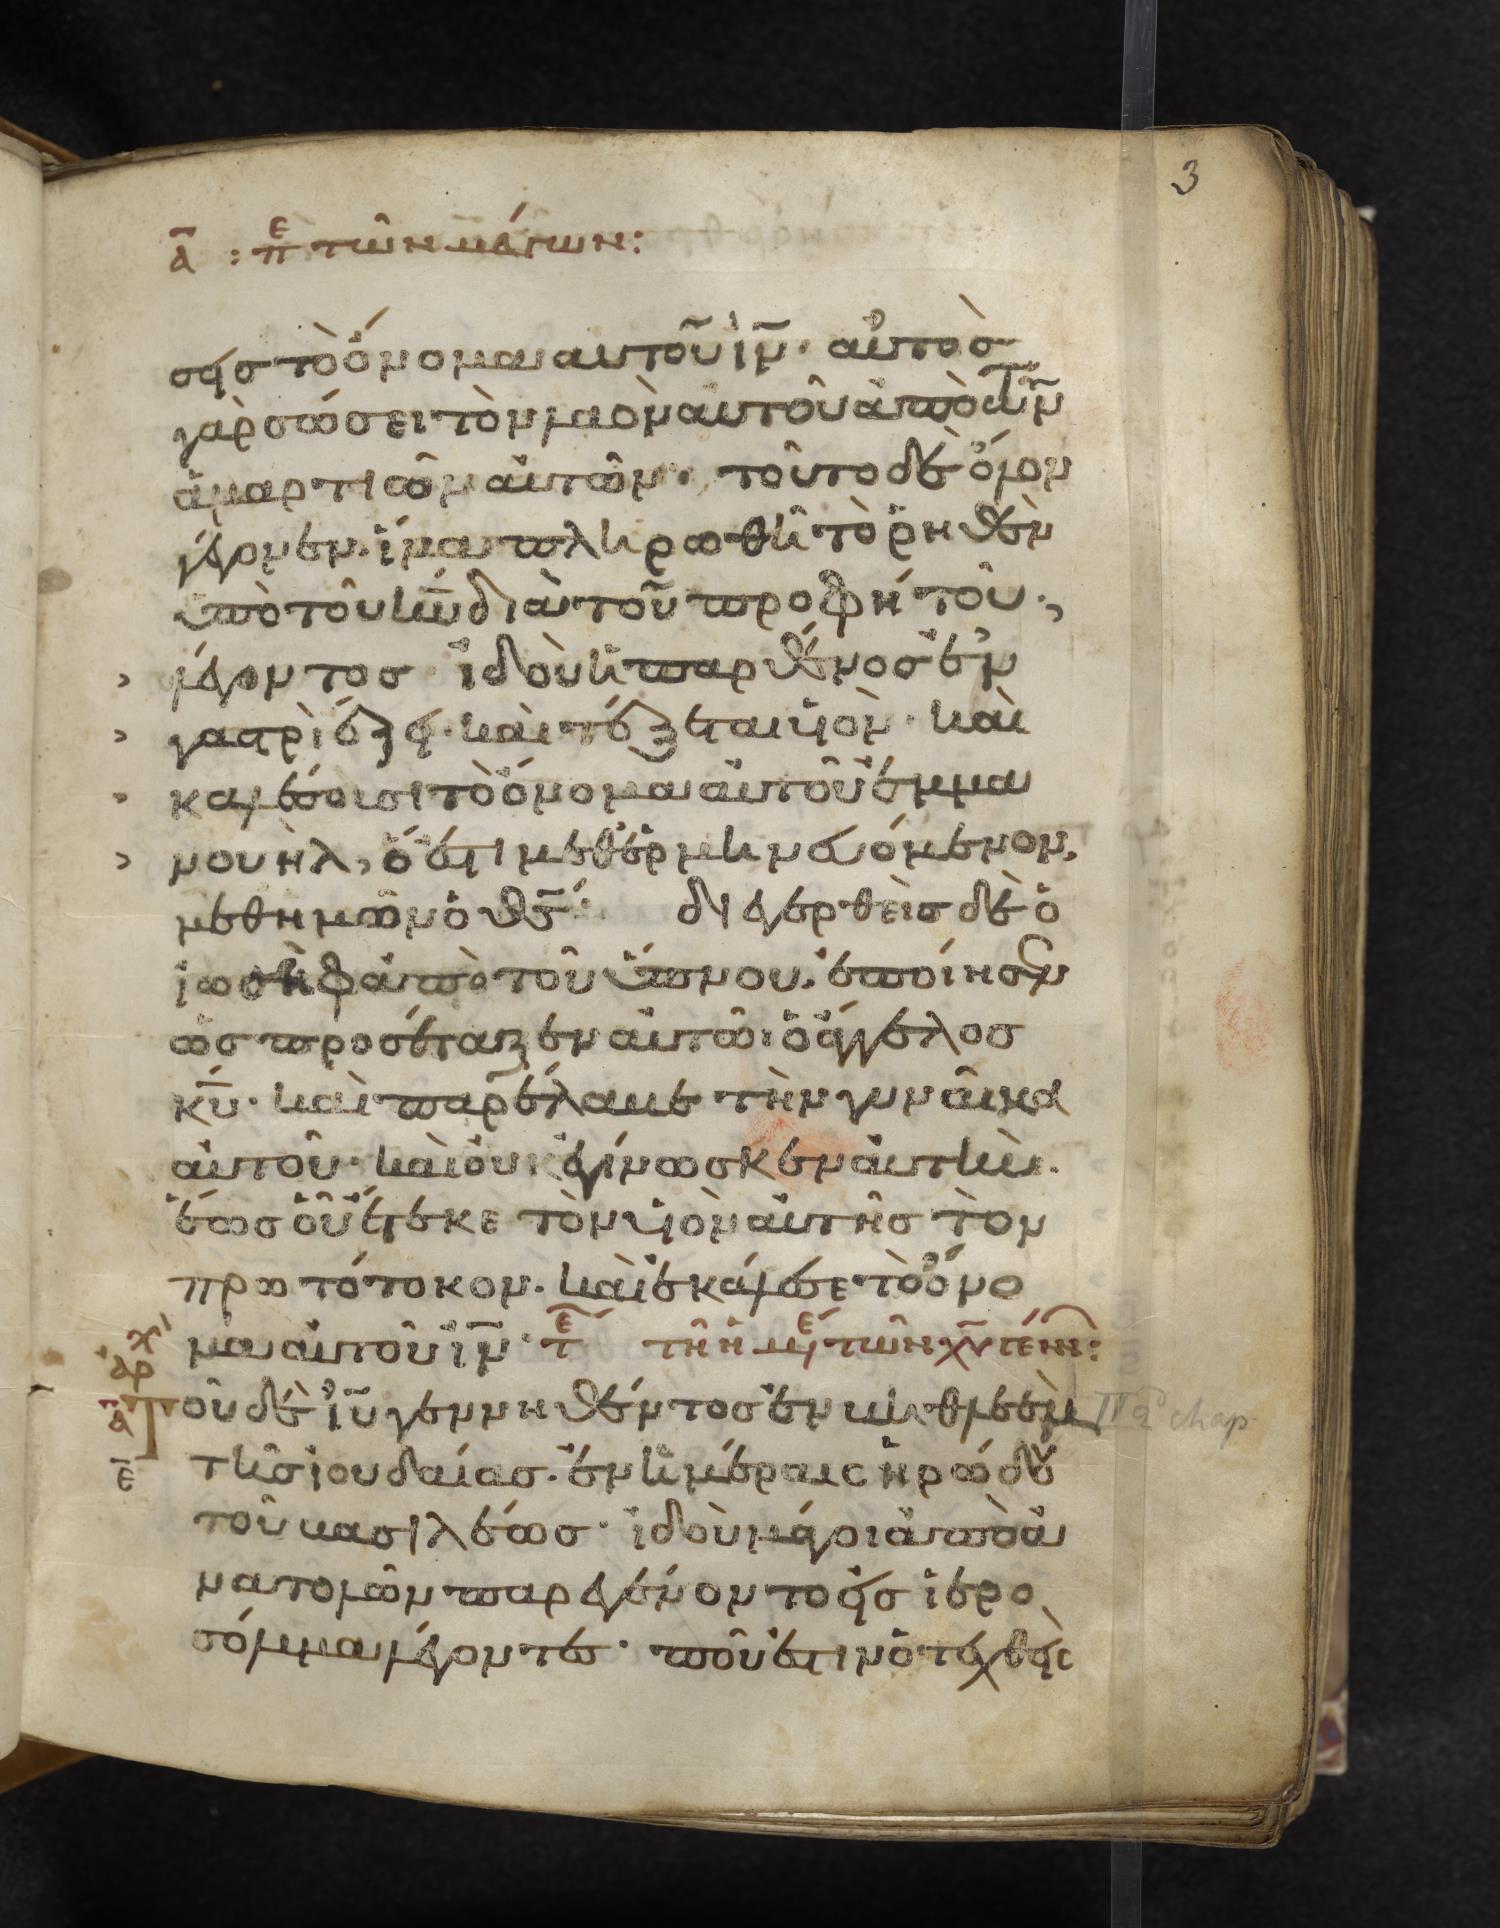 3
α̅ : πε τῶν μάγων:
σεισ τὸ ὄνομα αυτοῦ ἰν̅· αὐτὸσ
γὰρ σώσει τὸν λαὸν αυτοῦ ἀπὸ τῶν
ἁμαρτιῶν αὐτῶν· τοῦτο δὲ ὅλον
γέγονεν· ἵνα πληρωθῆ τὸ ῥηθὲν
ὑπὸ τοῦ κυ̅ διὰ τοῦ προφήτου·,
› λέγοντοσ ἰδοὺ ἡ παρθένοσ ἐν
› γαστρὶ ἕξει· καὶ τέξεται υἱὸν· καὶ
› καλέσουσι τὸ ὄνομα αὐτοῦ ἐμμα
› νουηλ, ὅ ἐστι μεθερμηνευόμενον,
μεθημῶν ὁ θσ̅· διεγερθεὶσ δὲ ὁ
ἰωσὴφ ἀπὸ τοῦ ὕπνου, ἐποίησεν
ὡσ προσέταξεν αὐτῶ ὁ ἄγγελοσ
κυ̅· καὶ παρέλαβε τὴν γυναῖκα
αὐτοῦ· καὶ οὐκ ἐγίνωσκεν αὐτὴν·
ἕωσ οὗ ἔτεκε τὸν υἱὸν αὐτῆσ τὸν
πρωτότοκον· καὶ ἐκάλεσε τὸ ὄνο
χι
μα αὐτοῦ ἰν̅· τε τῆ ἡμε τῶν χυ γεν:
αρ
α̅ Τοῦ δὲ ἰυ̅ γεννηθέντοσ ἐν βιθλεὲμ IId chap
ε̅ τῆσ ἰουδαίασ· ἐν ἡμέραισ ἡρώδου
τοῦ βασιλέωσ· ἰδοὺ μάγοι ἀπὸ ἀ
νατολῶν παρεγένοντο εἰσ ἱερο
σόλυμα λέγοντεσ· ποῦ ἐστιν ὁ τεχθεὶσ